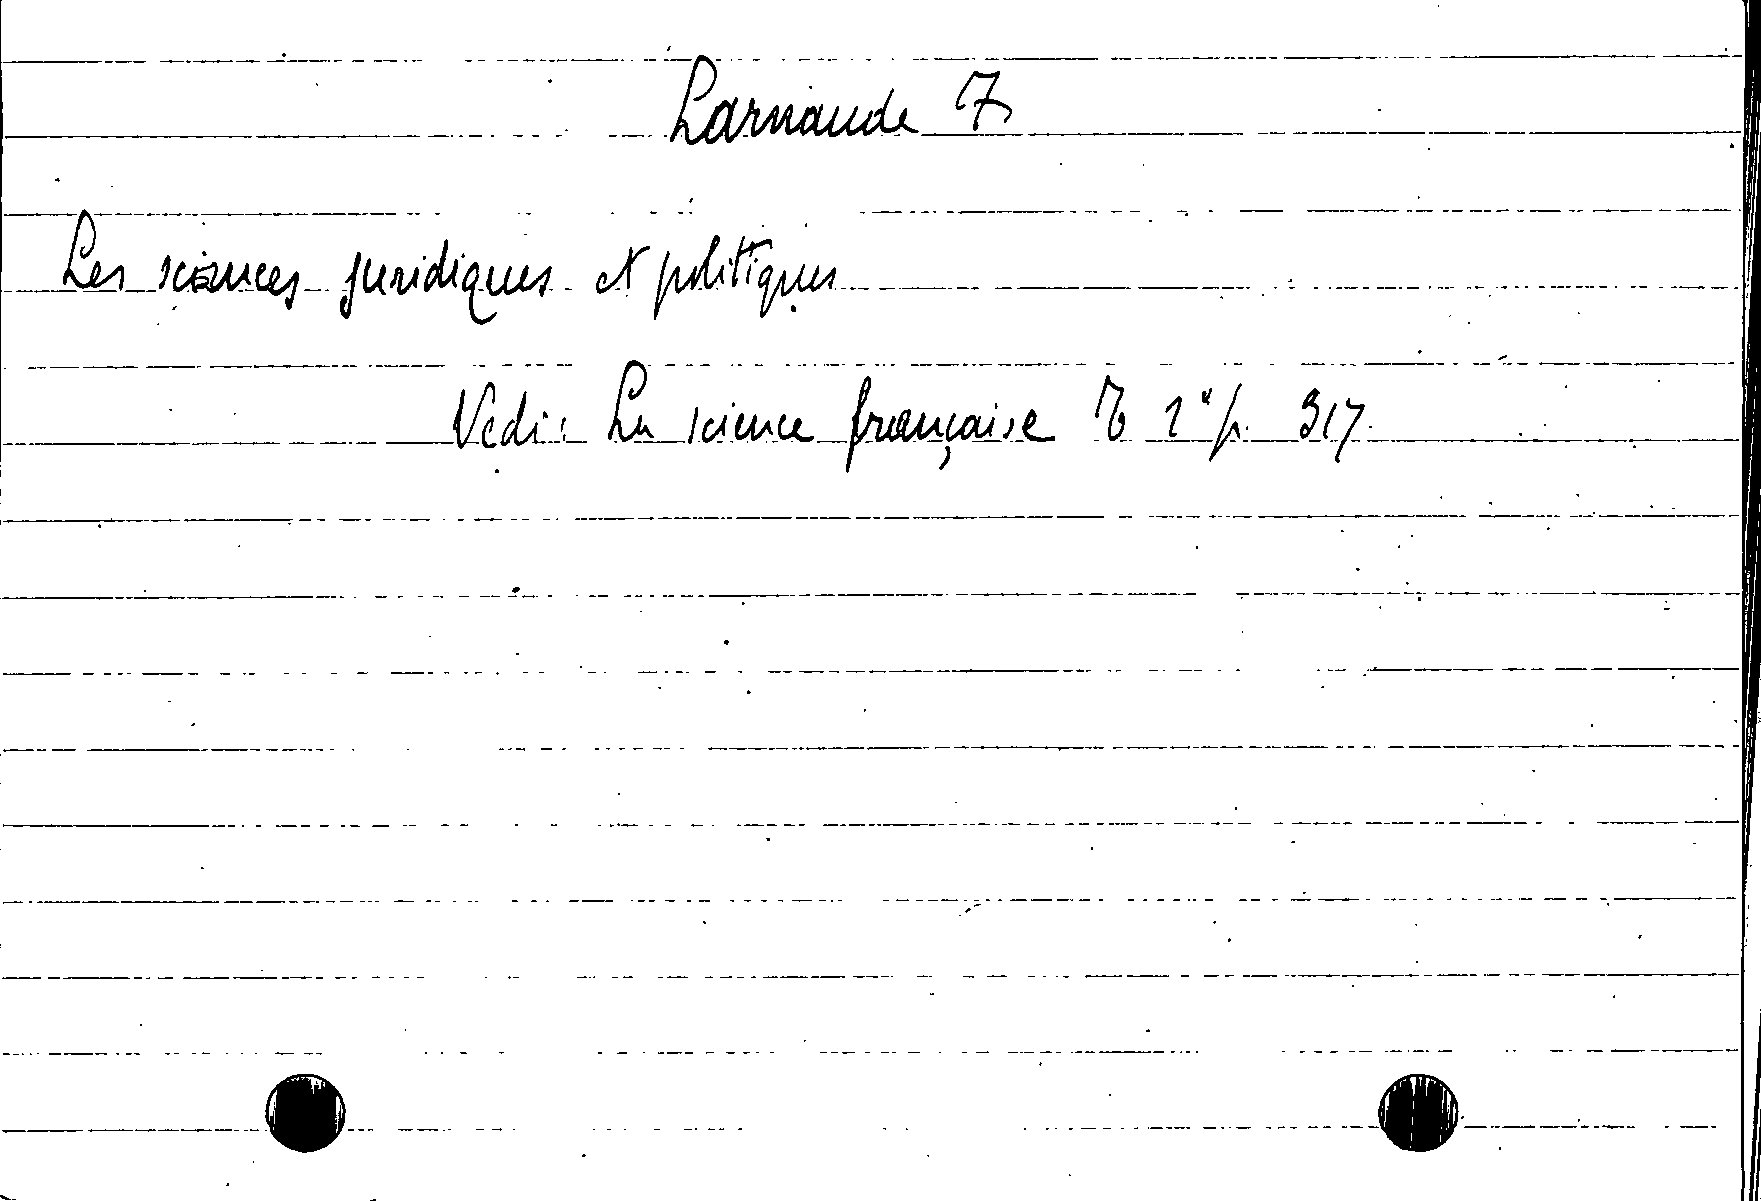 Larnaude F
Les sciences juridiques et politiques
Vedi: La science française T 2° p. 317